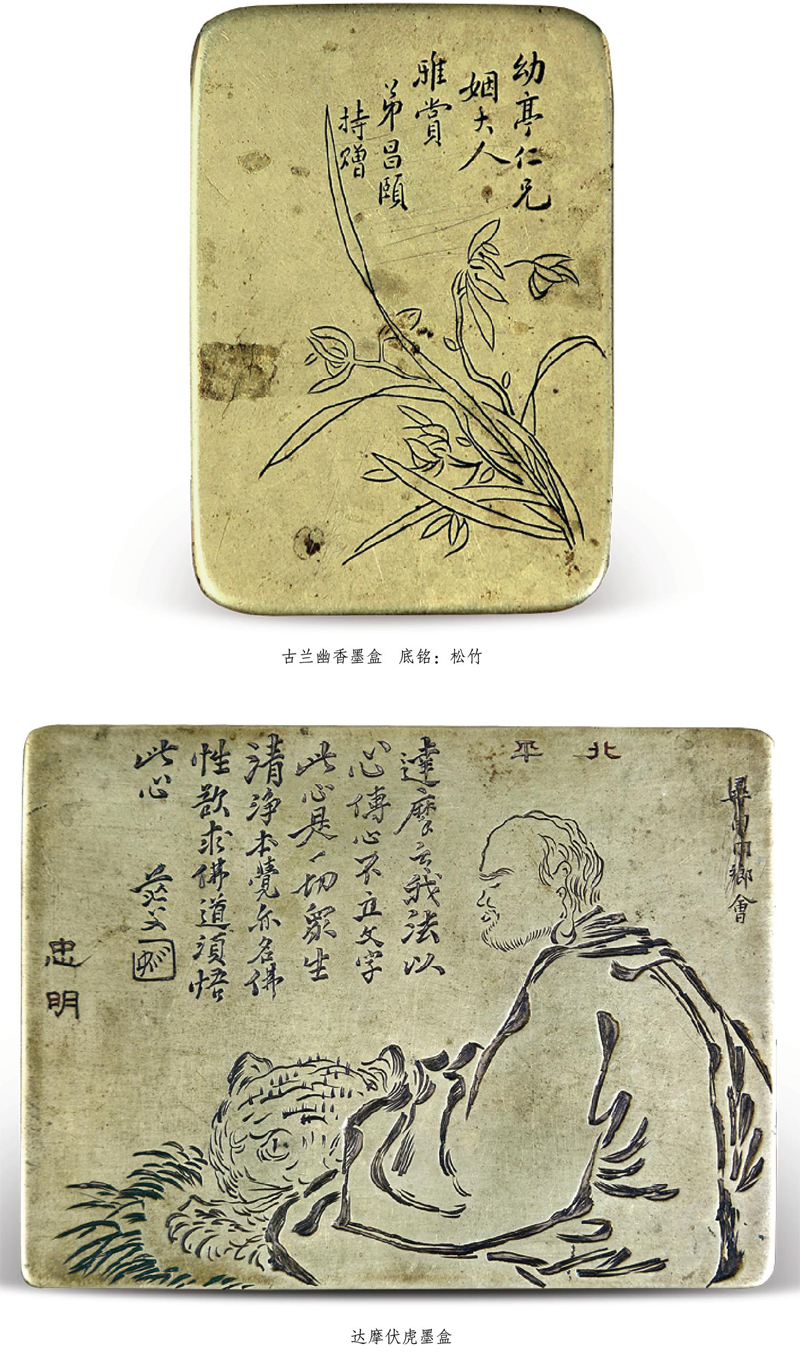 幼亭仁兄
姻大人
雅賞
弟昌頤
持贈
古兰幽香墨盒 底铭：松竹
北平
鄉會
達摩云我法以
心傳心不立文字
此心是一切眾生
清淨本覺亦名佛
性欲求佛道須悟
此心
茫父
忠明
达摩伏虎墨盒